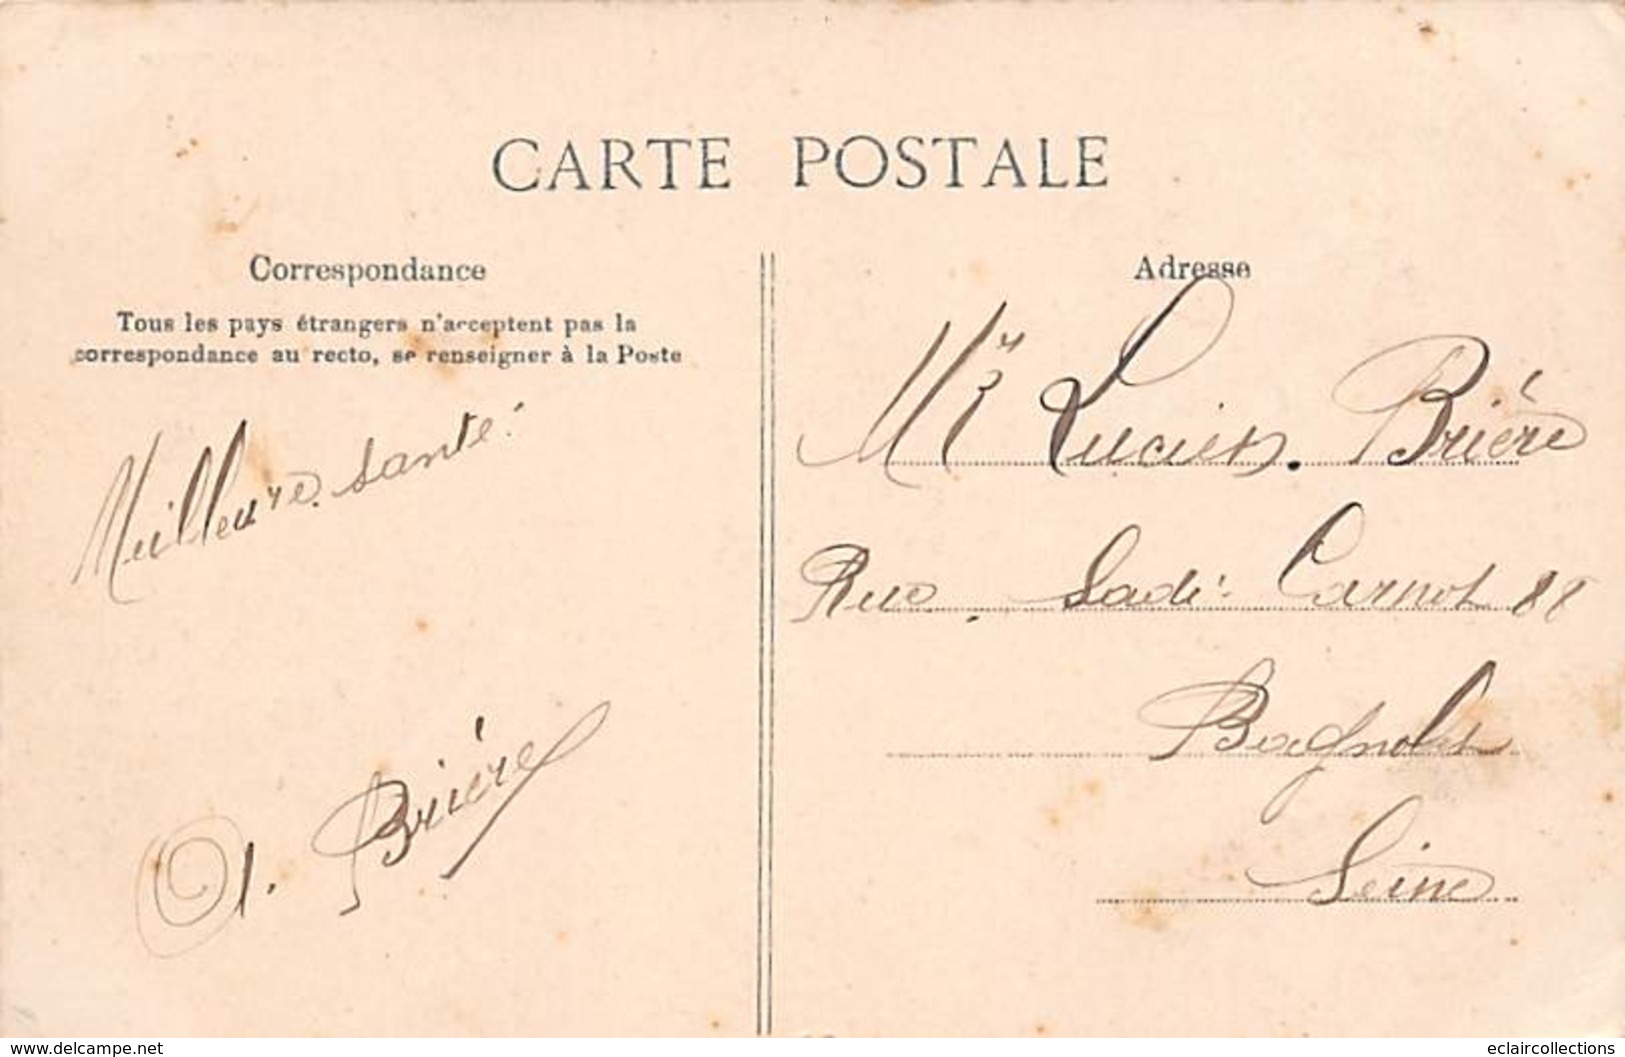 CARTE POSTALE
Correspondance
Tous les pays étrangers n'acceptent pas la
correspondance au recto, se renseigner à la Poste
Meilleure santé!
A. Brière
Adresse
Mr Lucien. Brière
Rue Sadi Carnot 88
Bagnolet
Seine
www.delcampe.net
eclaircollections